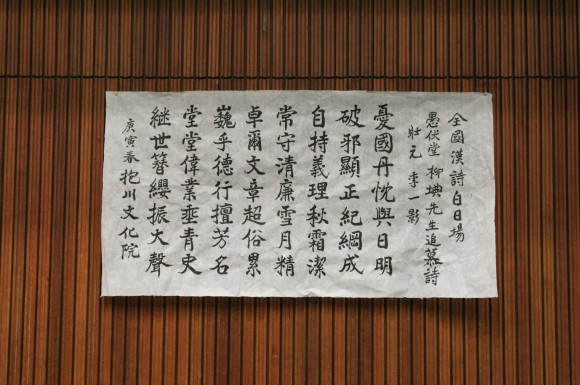 全國漢詩白日場
愚伏堂 柳㙉先生追慕詩
壯元 李一影
憂國丹忱與日明
破邪顯正紀綱成
自持義理秋霜潔
常守清廉雪月精
卓爾文章超俗累
巍乎德行擅芳名
堂堂偉業垂青史
継世簪纓振大聲
庚寅春 抱川文化院